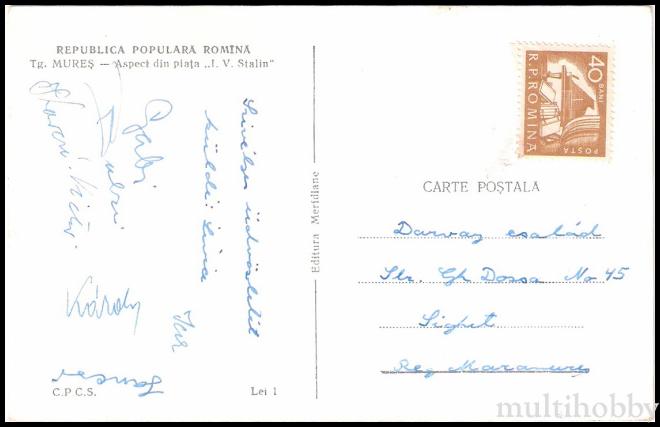 REPUBLICA POPULARĂ ROMÎNĂ
Tg. MUREȘ — Aspect din piața „I. V. Stalin"
Szívélyes üdvözletét
küldi: Lívia
Gabi
Károly
C.P.C.S.
Lei 1
Editura Meridiane
40 BANI
R.P.ROMINA
POSTA
CARTE POȘTALĂ
Darvay család
Str. Gh Dossa No 45
Sighet
Reg Maramureș
multihobby